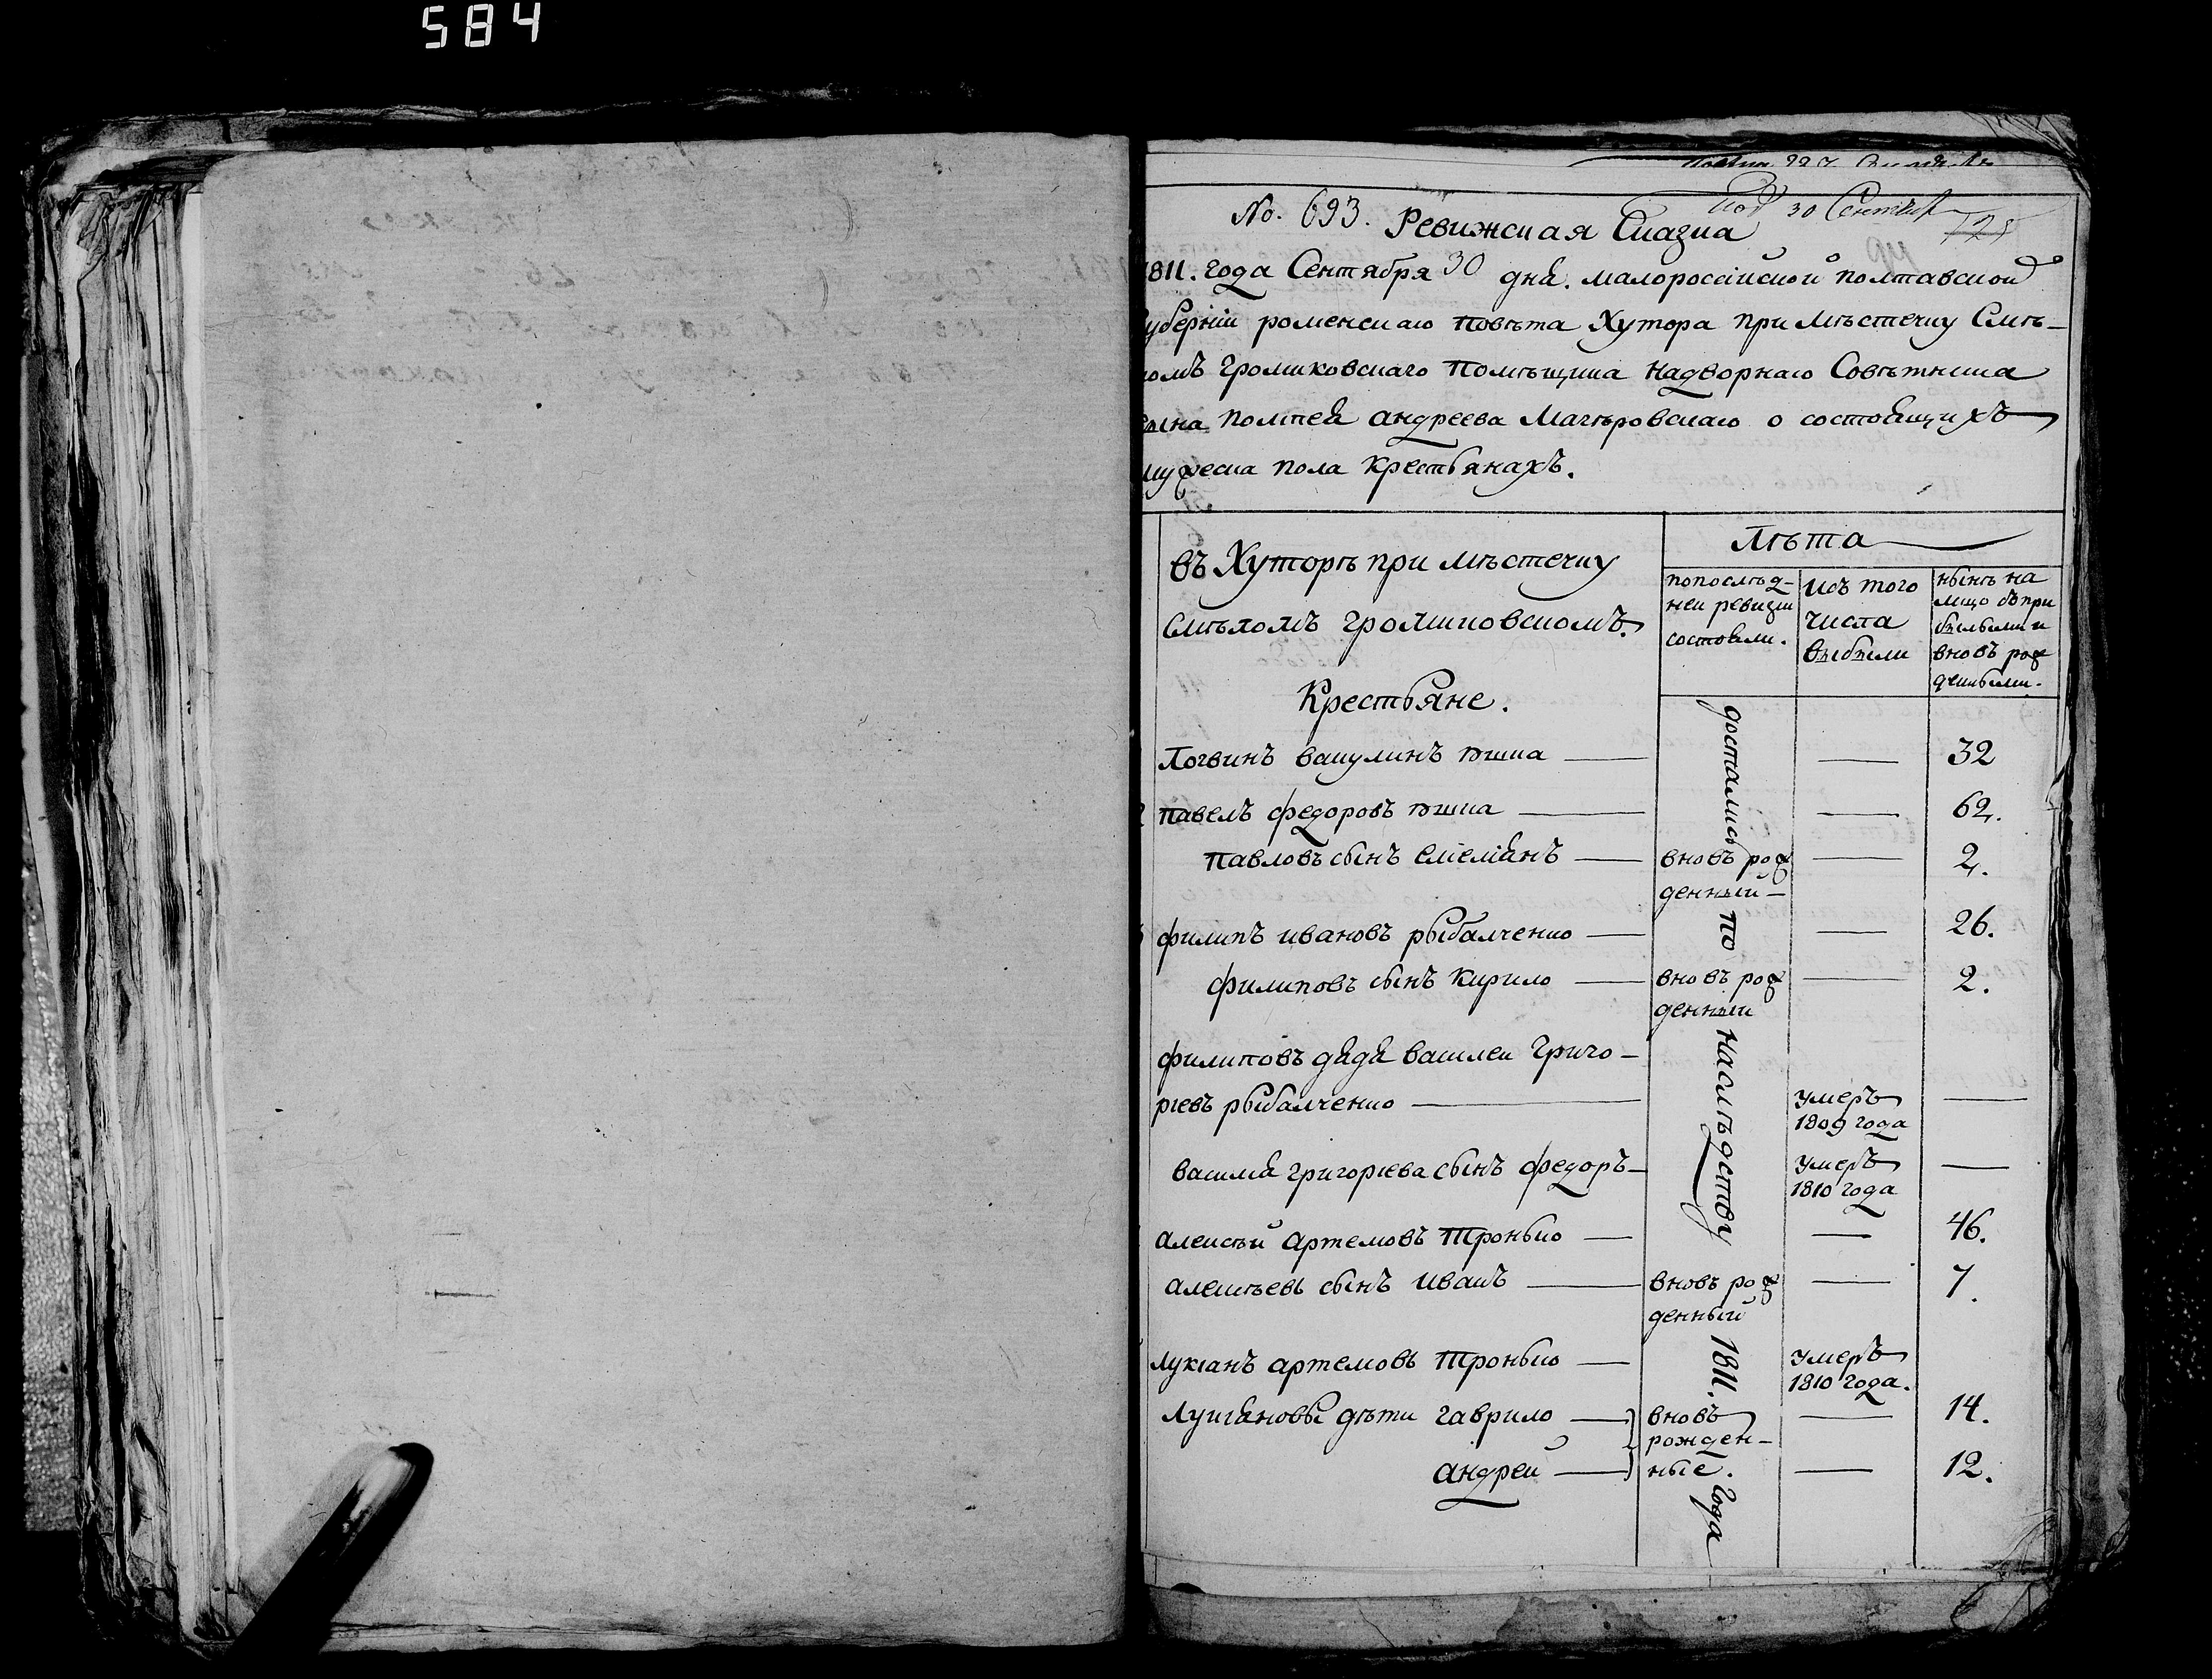 584
под 30 Сентяб
No. 693. Ревижская Сказка
1811. года Сентября 30 дня. малороссійской полтавской
губерніи роменскаго повѣта Хутора при мѣстечку Смѣ-
ломъ громиковскаго Помѣщика Надворнаго Совѣтника
сына помпея андреева Магѣровскаго о состоящихъ
мужеска пола крестьянахъ.
въ Хуторѣ при мѣстечку
Смѣломъ громиковскомъ.
Крестьяне.
Лѣта
попослѣд-
ней ревизіи
состояли.
изъ того
числа
выбыли
нынѣ на
лицо съ при
былыми и
вновь рож
денными.
досталися по наслѣдству 1811. года
Логвинъ вакулинъ — — 32
2 павелъ федоровъ — — 62.
Павловъ сынъ емелянъ — вновь рож — 2.
денный —
филипъ ивановъ рыбалченко — — 26.
филиповъ сынъ кирило — вновь рож — 2.
денный
филиповъ дядя василей Григо-
риевъ рыбалченко — умеръ —
1809 года
василия григориева сынъ федоръ — умеръ —
1810 года
алексѣй артемовъ Тронько — — 46.
алексѣевъ сынъ иванъ — вновь рож — 7.
денный
Лукіанъ артемовъ Тронько — умеръ
1810 года.
Лукіяновы дѣти гаврило — вновь — 14.
рожден-
андрей — ные. — 12.